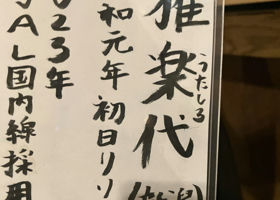 雅楽代
うたしろ
和元年 初日リリ
023年
JAL国内線採用